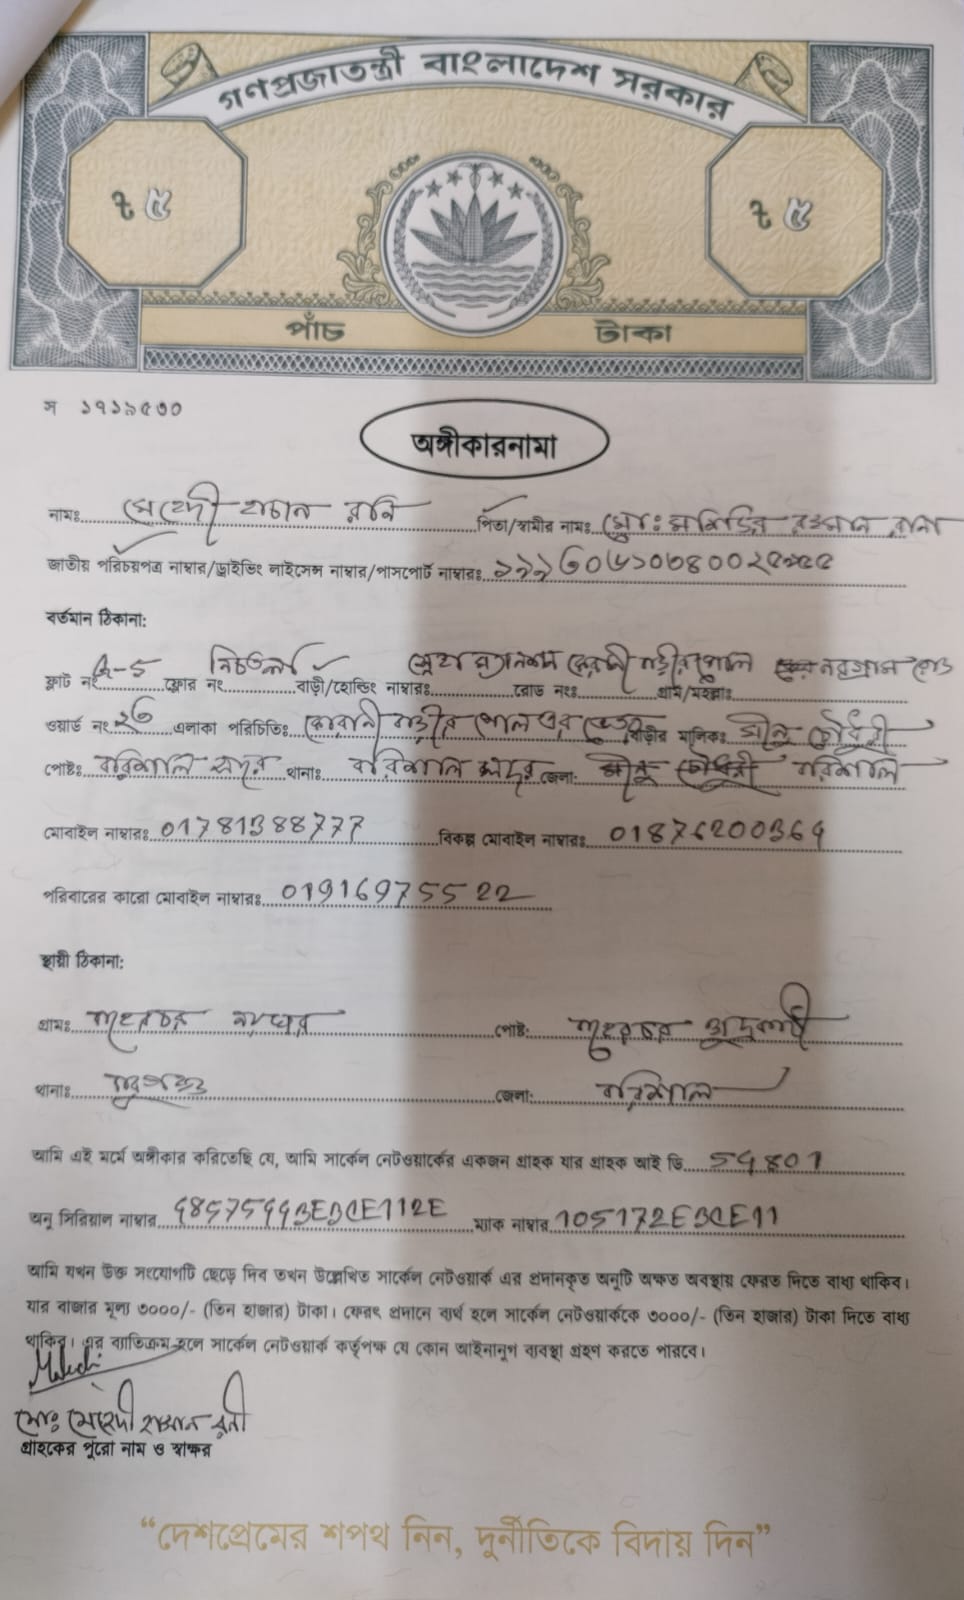 গণপ্রজাতন্ত্রী বাংলাদেশ সরকার
৳ ৫ ৳ ৫
পাঁচ টাকা
স ১৭১৯৫৩০
অঙ্গীকারনামা
নামঃ মেহেদী হাচান রনি পিতা/স্বামীর নামঃ মোঃ রহমান রানা
জাতীয় পরিচয়পত্র নাম্বার/ড্রাইভিং লাইসেন্স নাম্বার/পাসপোর্ট নাম্বারঃ
বর্তমান ঠিকানা:
ফ্লাট নং A-5 ফ্লোর নং নিচতলা বাড়ী/হোল্ডিং নাম্বারঃ রোড নংঃ গ্রাম/মহল্লাঃ নবগ্রাম রোড
ওয়ার্ড নং ২৩ এলাকা পরিচিতিঃ বাড়ীর পোল এর বাড়ীর মালিকঃ মীনু চৌধুরী
পোষ্টঃ বরিশাল সদর থানাঃ বরিশাল সদর জেলা: বরিশাল
মোবাইল নাম্বারঃ 01781388777 বিকল্প মোবাইল নাম্বারঃ 01876200364
পরিবারের কারো মোবাইল নাম্বারঃ 01916975522
স্থায়ী ঠিকানা:
গ্রামঃ পোষ্ট:
থানাঃ জেলা: বরিশাল
আমি এই মর্মে অঙ্গীকার করিতেছি যে, আমি সার্কেল নেটওয়ার্কের একজন গ্রাহক যার গ্রাহক আই ডি 54801
অনু সিরিয়াল নাম্বার 48575443EBCE112E ম্যাক নাম্বার 105172EBCE11
আমি যখন উক্ত সংযোগটি ছেড়ে দিব তখন উল্লেখিত সার্কেল নেটওয়ার্ক এর প্রদানকৃত অনুটি অক্ষত অবস্থায় ফেরত দিতে বাধ্য থাকিব।
যার বাজার মূল্য ৩০০০/- (তিন হাজার) টাকা। ফেরৎ প্রদানে ব্যর্থ হলে সার্কেল নেটওয়ার্ককে ৩০০০/- (তিন হাজার) টাকা দিতে বাধ্য
থাকিব। এর ব্যাতিক্রম হলে সার্কেল নেটওয়ার্ক কর্তৃপক্ষ যে কোন আইনানুগ ব্যবস্থা গ্রহণ করতে পারবে।
মোঃ মেহেদী হাসান রনী
গ্রাহকের পুরো নাম ও স্বাক্ষর
“দেশপ্রেমের শপথ নিন, দুর্নীতিকে বিদায় দিন”